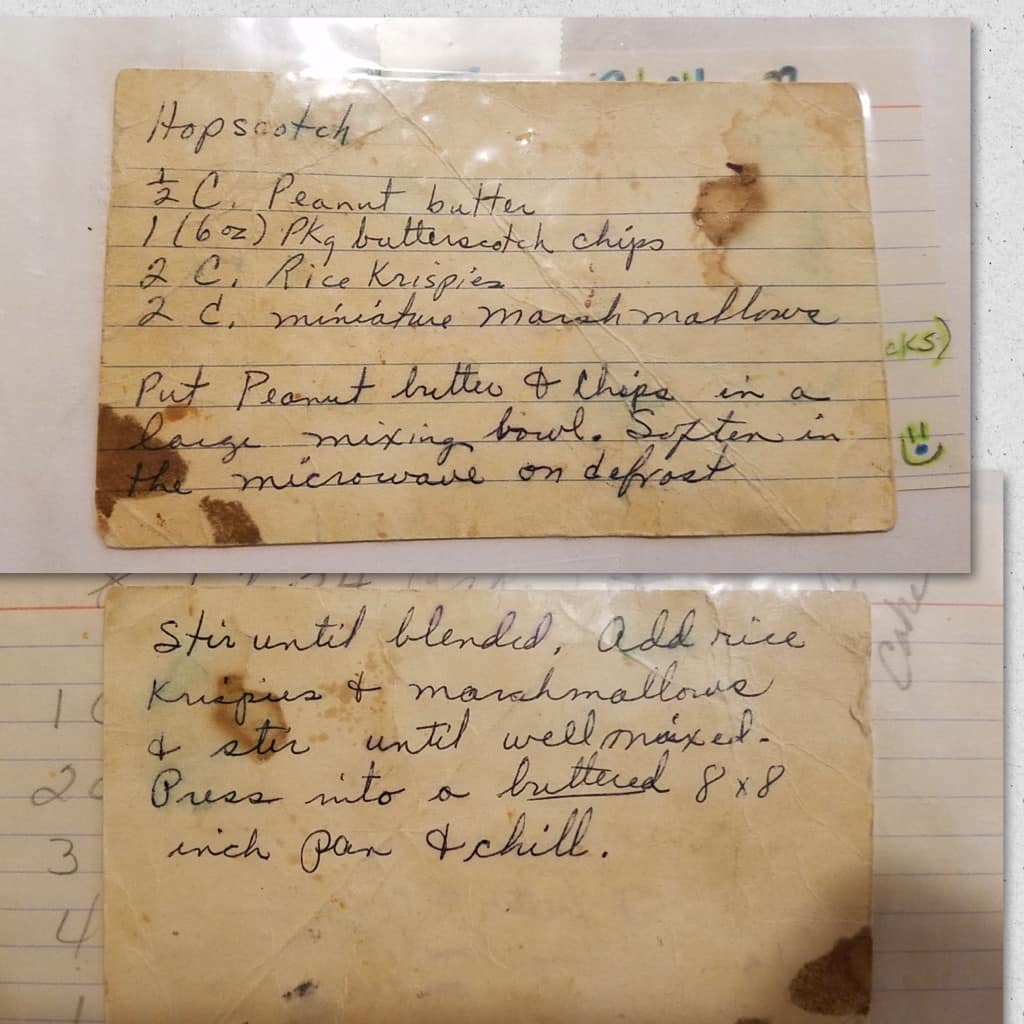 Hopscotch
½ C. Peanut butter
1 (6 oz) Pkg butterscotch chips
2 C. Rice Krispies
2 C. miniature marshmallows
Put Peanut butter & Chips in a
large mixing bowl. Soften in
the microwave on defrost
cks)
Stir until blended. Add rice
Krispies & marshmallows
& stir until well mixed.
Press into a buttered 8 x 8
inch pan & chill.
1
2
3
4